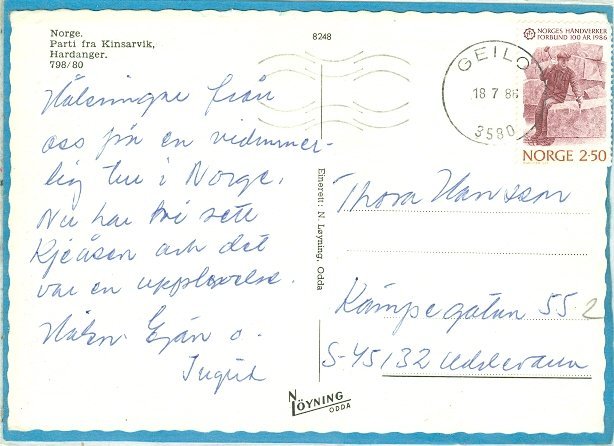 Norge.
Parti fra Kinsarvik,
Hardanger.
798/80
8248
NORGES HÅNDVERKER
FORBUND 100 ÅR 1986
NORGE 2·50
GEILO
18 7 86
3580
Hälsningar från
oss på en vidunder-
lig tur i Norge.
Nu har vi sett
Kjeåsen och det
var en upplevelse.
Hälsn
Ingrid
Enerett: N. Løyning, Odda
Thora Hansson
Kämpegatan 55 2
S-45132 Uddevalla
N LÖYNING
ODDA